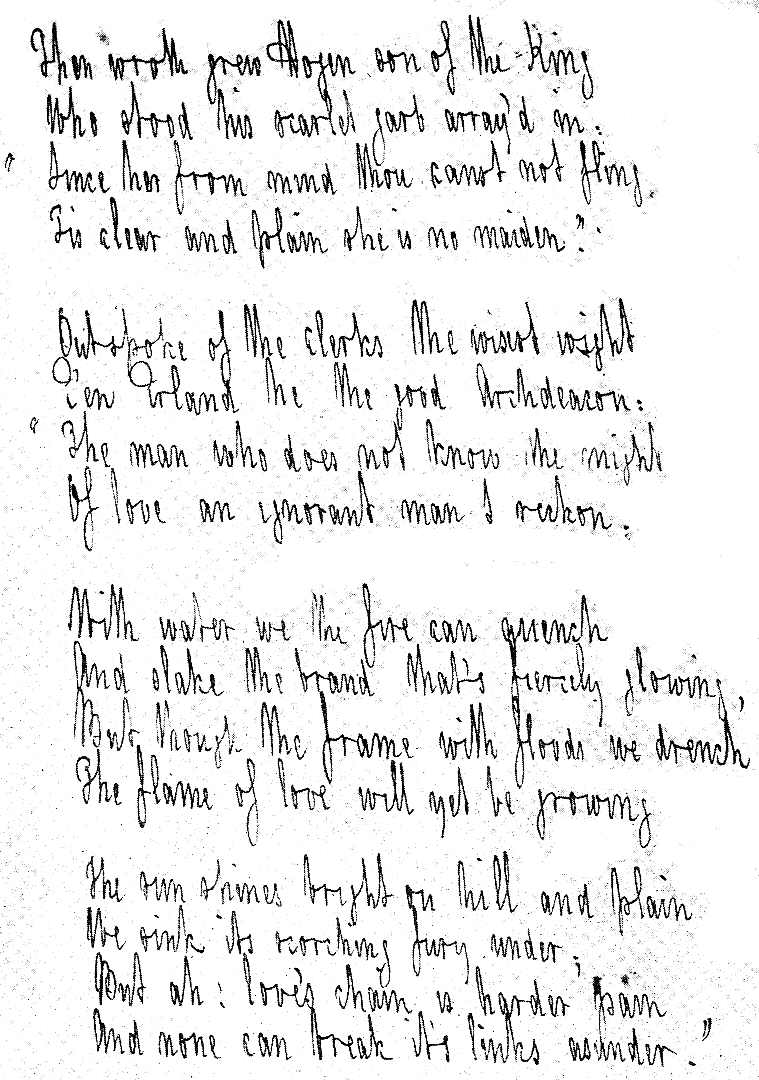 Then wroth grew Hogen son of the King
Who stood his scarlet garb array'd in:
"Since her from mind thou canst not fling
Tis clear and plain she is no maiden".
Outspoke of the clerks the wisest wight
I'en Erland he the good Archdeacon:
"The man who does not know the might
Of love an ignorant man I reckon.
With water we the fire can quench
And slake the brand that's fiercely glowing,
But though the frame with floods we drench
The flame of love will yet be growing
The sun shines bright on hill and plain
We sink its scorching fury under;
But ah: love's chain is harder pain
And none can break it's links asunder."